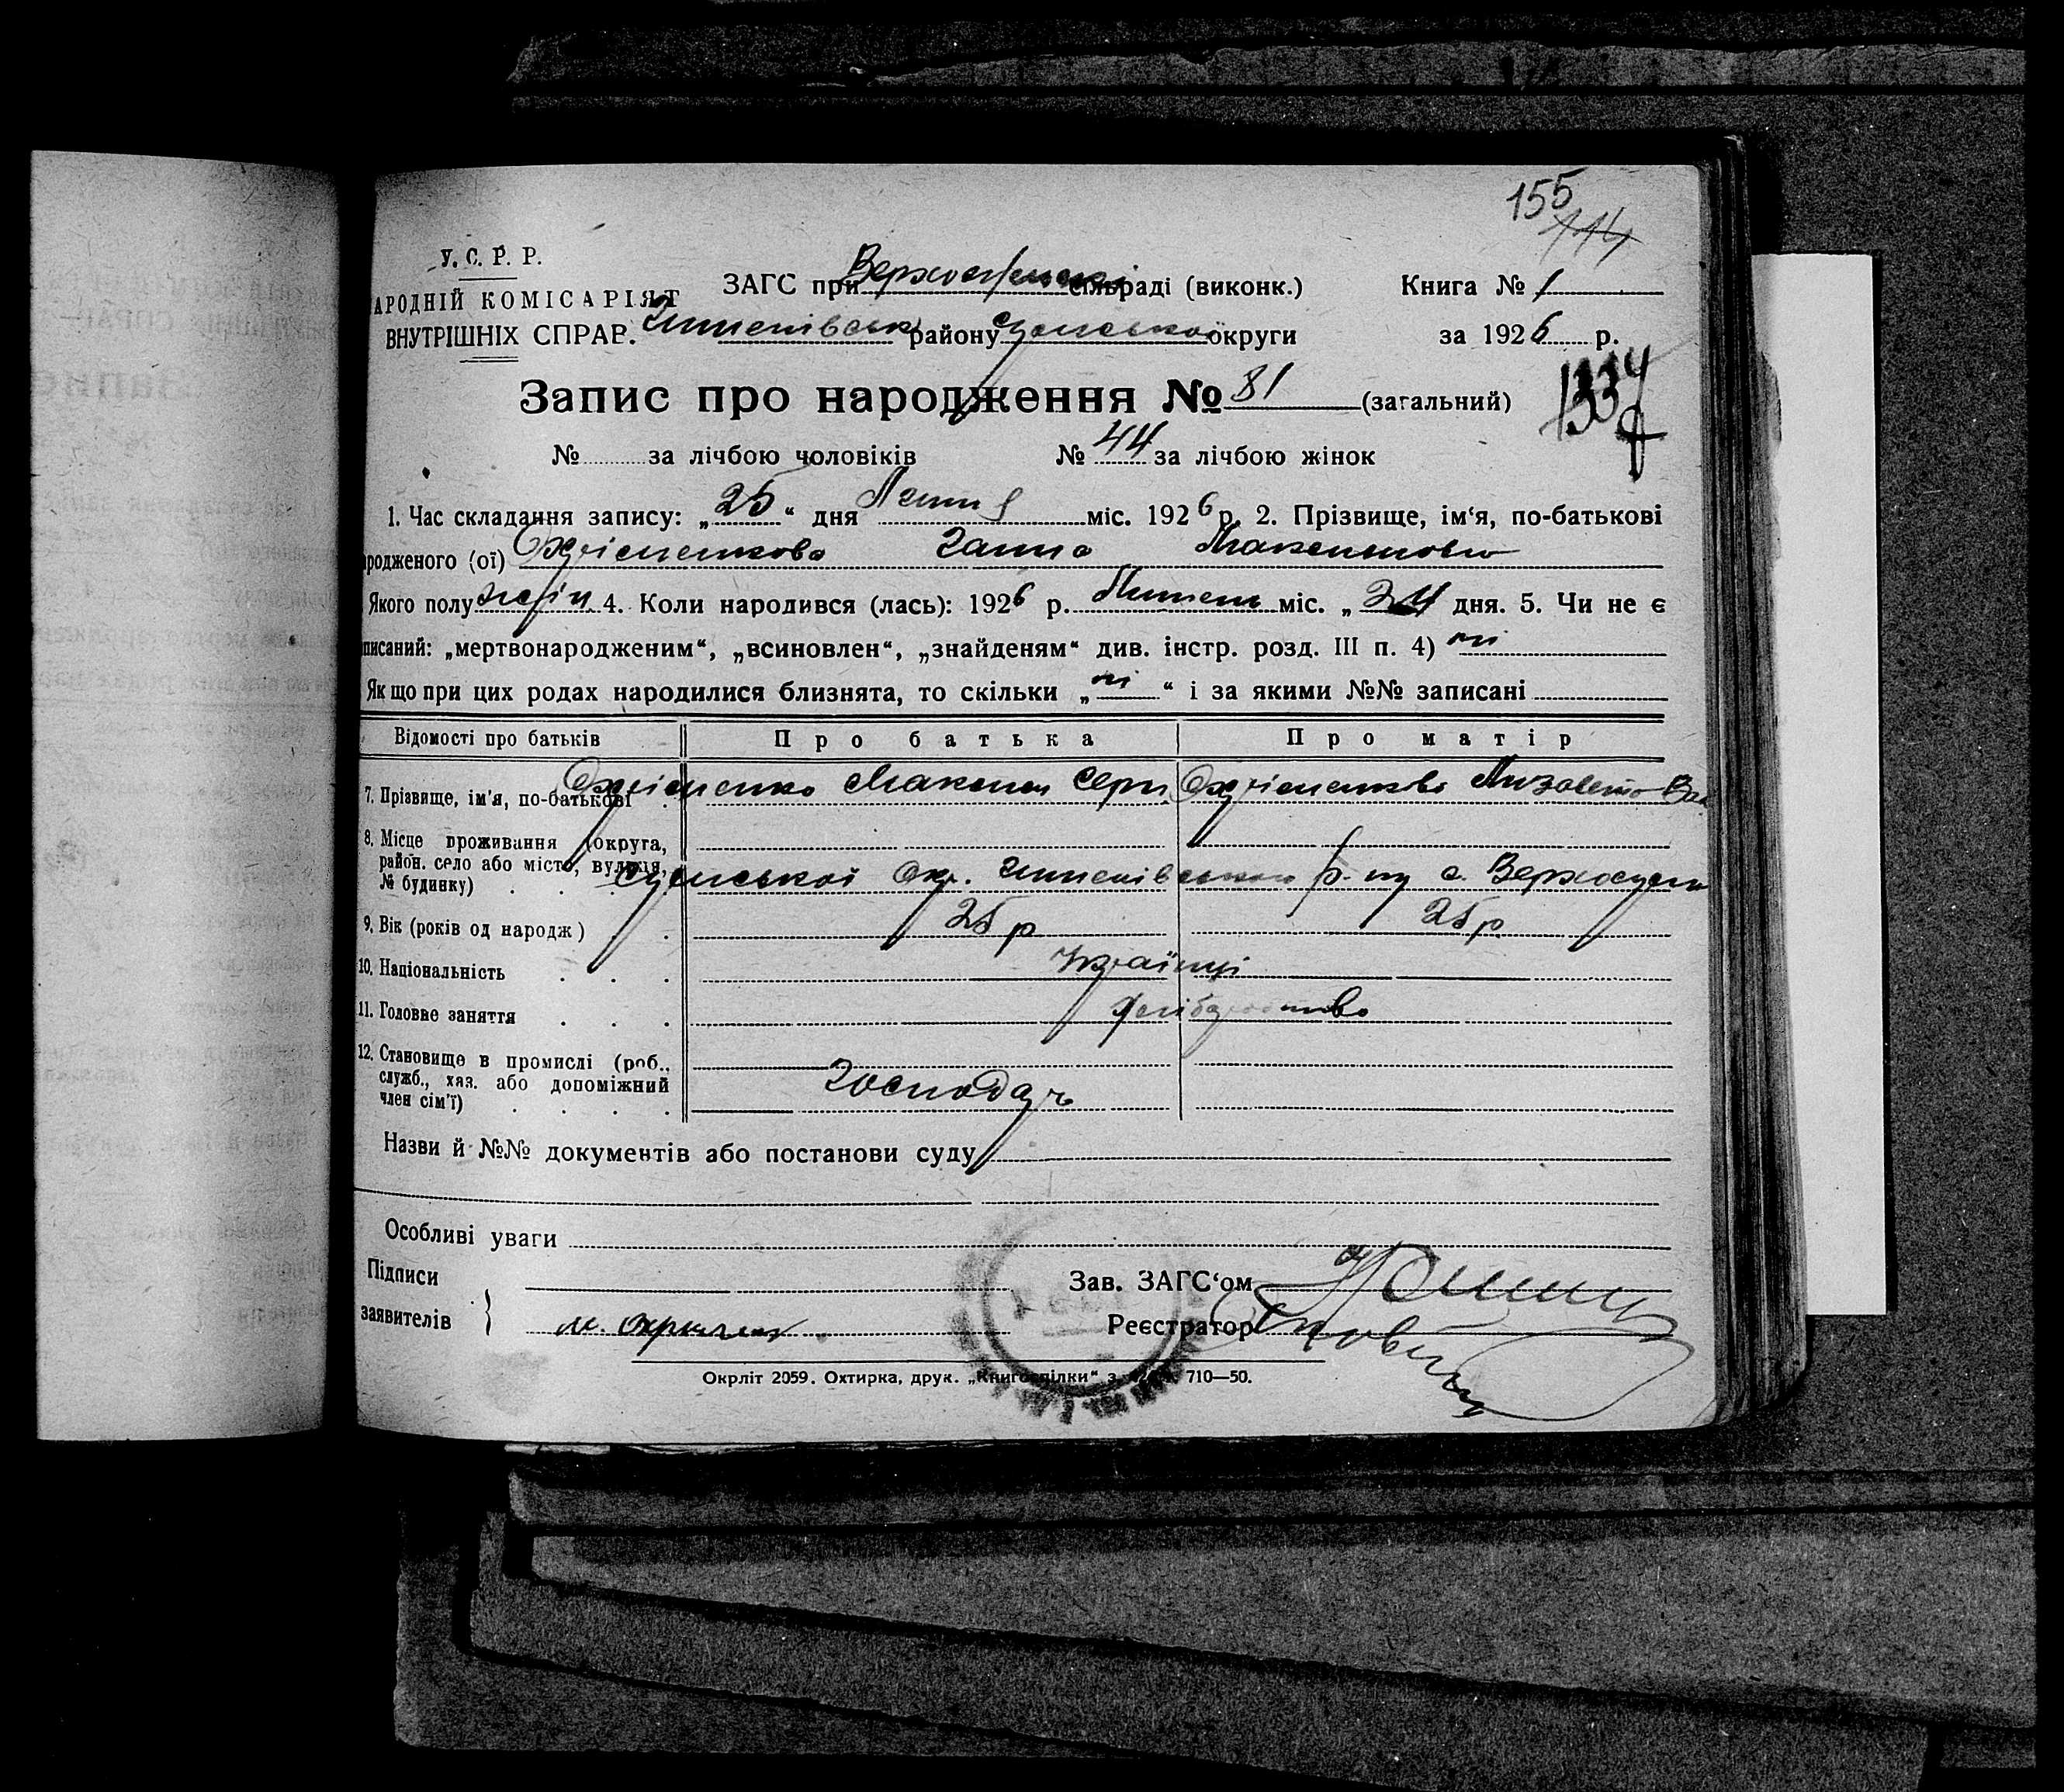 155
114
У. С. Р. Р.
АРОДНІЙ КОМІСАРІЯТ
ВНУТРІШНІХ СПРАВ.
ЗАГС при Верхосульскі сільраді (виконк.)
Штепівськ району Сумської округи
Книга № 1
за 1926 р.
Запис про народження № 81 (загальний)
1334
№ за лічбою чоловіків № 44 за лічбою жінок
1. Час складання запису: „25“ дня Липня міс. 1926 р. 2. Прізвище, ім‘я, по-батькові
родженого (ої) Охріменкова Ганна Максимовна
Якого полу жін 4. Коли народився (лась): 1926 р. Липень міс. „24 дня. 5. Чи не є
писаний: „мертвонародженим“, „всиновлен“, „знайденям“ див. інстр. розд. III п. 4) ні
Якщо при цих родах народилися близнята, то скільки „ні“ і за якими №№ записані
Відомості про батьків Про батька Про матір
7. Прізвище, ім'я, по-батькові Охріменко Максим Серг Охріменкова Лизавета
8. Місце проживання (округа,
район. село або місто, вулиця,
№ будинку) Сумської Окр. Штепівського р-ну с. Верхосули
9. Вік (років од народж) 25 р 25 р
10. Національність Українці
11. Головне заняття Хліборобство
12. Становище в промислі (роб.,
служб., хаз. або допоміжний
член сім'ї) Господар
Назви й №№ документів або постанови суду
Особливі уваги
Підписи
заявителів } м. охримен
Зав. ЗАГС‘ом
Реєстратор
Окрліт 2059. Охтирка, друк. „Книгоспілки“ з. 710—50.